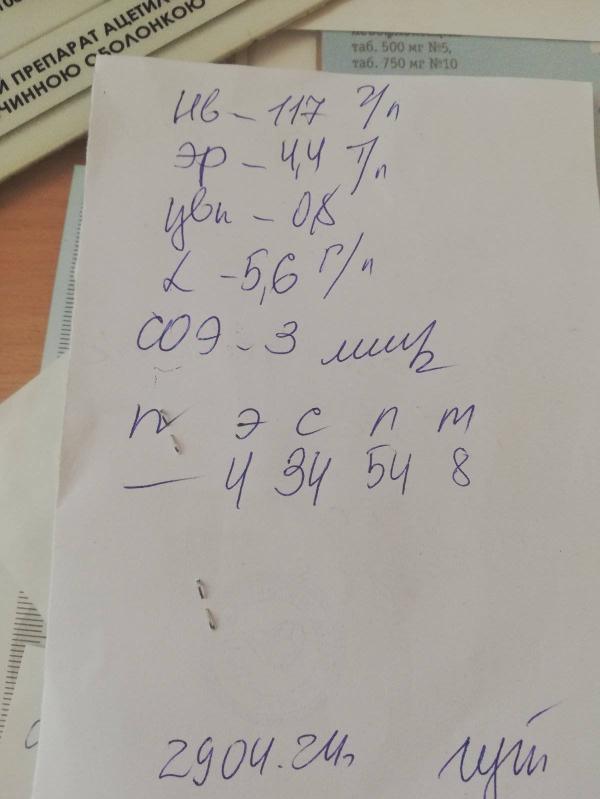 Й ПРЕПАРАТ АЦЕТИЛ
ЧИННОЮ ОБОЛОНКОЮ
таб. 500 мг №5,
таб. 750 мг №10
Нв – 117 г/л
Эр – 4,4 Т/л
цвп – 0,8
L – 5,6 Г/л
СОЭ – 3 мм/ч
п э с л м
— 4 34 54 8
29.04.24